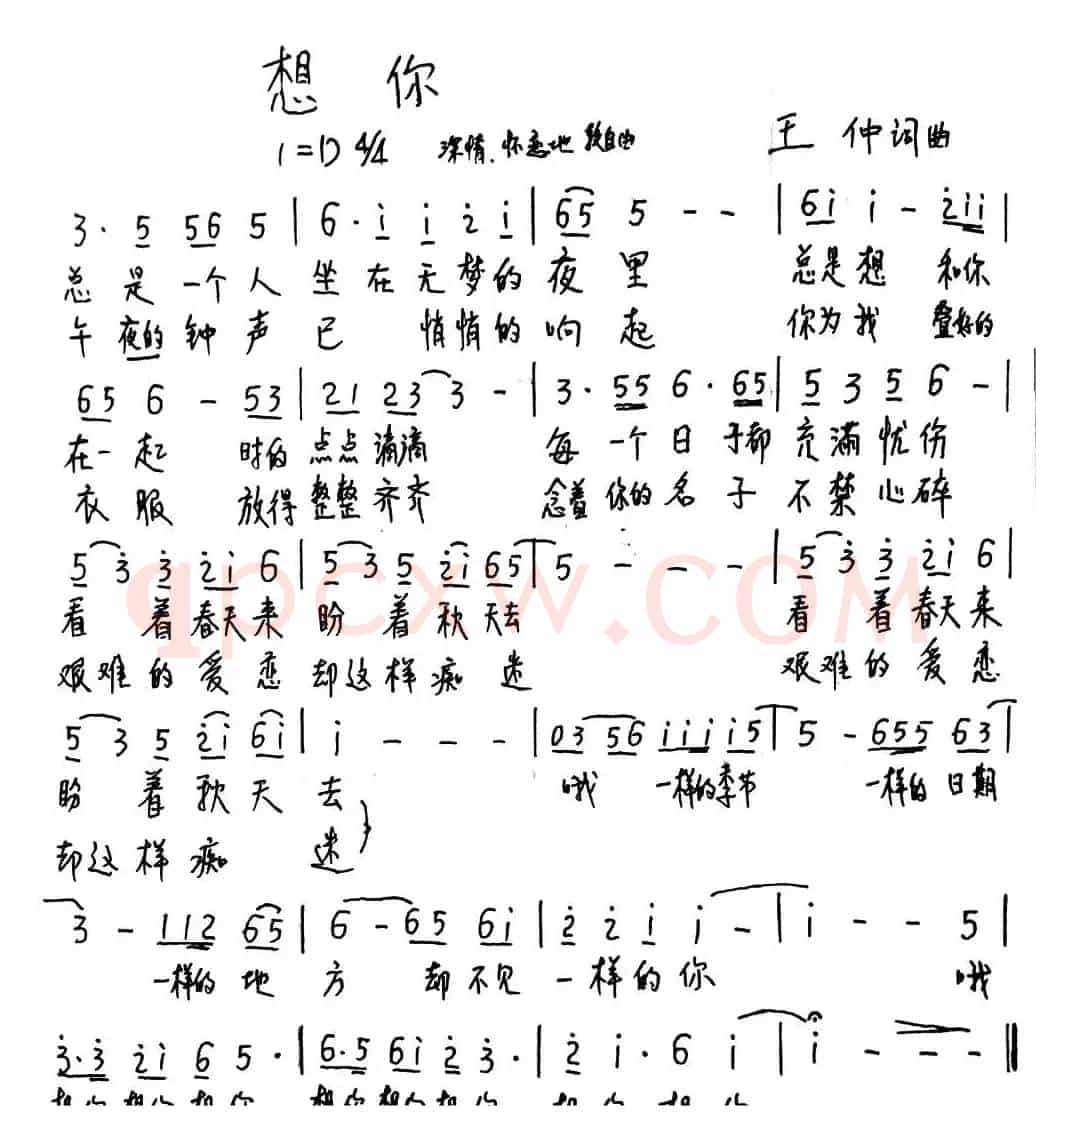 想 你
1=D 4/4 深情、怀恋地 较自由 王 仲词曲
3· 5 56 5 | 6· i i 2 i | 65 5 - - | 6i i - 2ii |
总 是 一个 人 坐 在 无 梦 的 夜 里 总是 想 和你
午 夜的 钟 声 已 悄 悄 的 响 起 你为 我 叠好的
65 6 - 53 | 21 23 3 - | 3· 55 6· 65 | 5 3 5 6 - |
在一 起 时的 点点 滴滴 每 一个 日 子都 充 满 忧 伤
衣 服 放得 整整 齐齐 念着 你的 名 子 不 禁 心 碎
5 3 3 2i 6 | 5 3 5 2i 65 | 5 - - - | 5 3 3 2i 6 |
看 着 春天 来 盼 着 秋 天去 看 着 春天 来
艰难 的 爱 恋 却这 样 痴 迷 艰难 的 爱 恋
qpcxw.com
5 3 5 2i 6i | i - - - | 03 56 iiii i5 | 5 - 655 63 |
盼 着 秋 天 去 哦 一样的 季节 一样的 日期
却这 样 痴 迷
3 - 112 65 | 6 - 65 6i | 2 2 i i - | i - - 5 |
一样的 地 方 却 不见 一 样 的 你 哦
3·3 2i 6 5· | 6·5 6i 2 3· | 2 i· 6 i | i - - - ‖